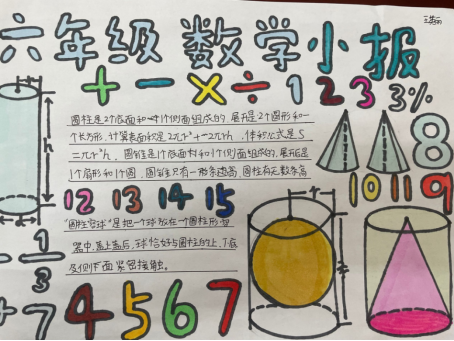 六年级 数学小报
+ - × ÷ 1 2 3 3%
圆柱是2个底面和一个侧面组成的,展开是2个圆形和一
个长方形,计算表面积是2πr²+2πrh,体积公式是S
=πr²h,圆锥是1个底面和1个侧面组成的,展开是
1个扇形和1个圆,圆锥只有一条高,圆柱有无数条高
h
8
10 11 9
12 13 14 15
"圆柱容球"是把一个球放在一个圆柱形容
器中,盖上盖后,球恰好与圆柱的上、下底
及侧面紧密接触。
r
1
3
+7 4 5 6 7